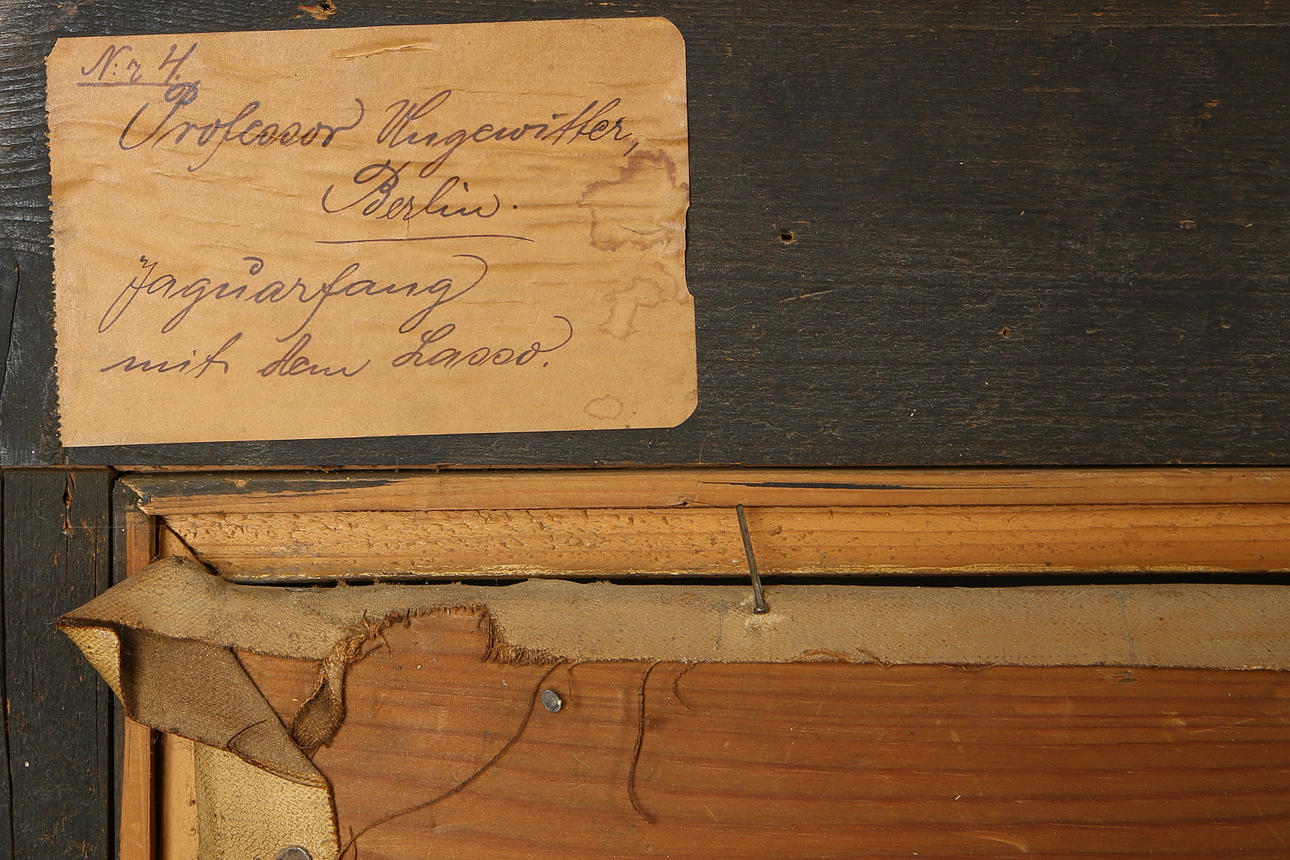 N:r 4.
Professor Ungewitter,
Berlin.
Jaguarfang
mit dem Lasso.